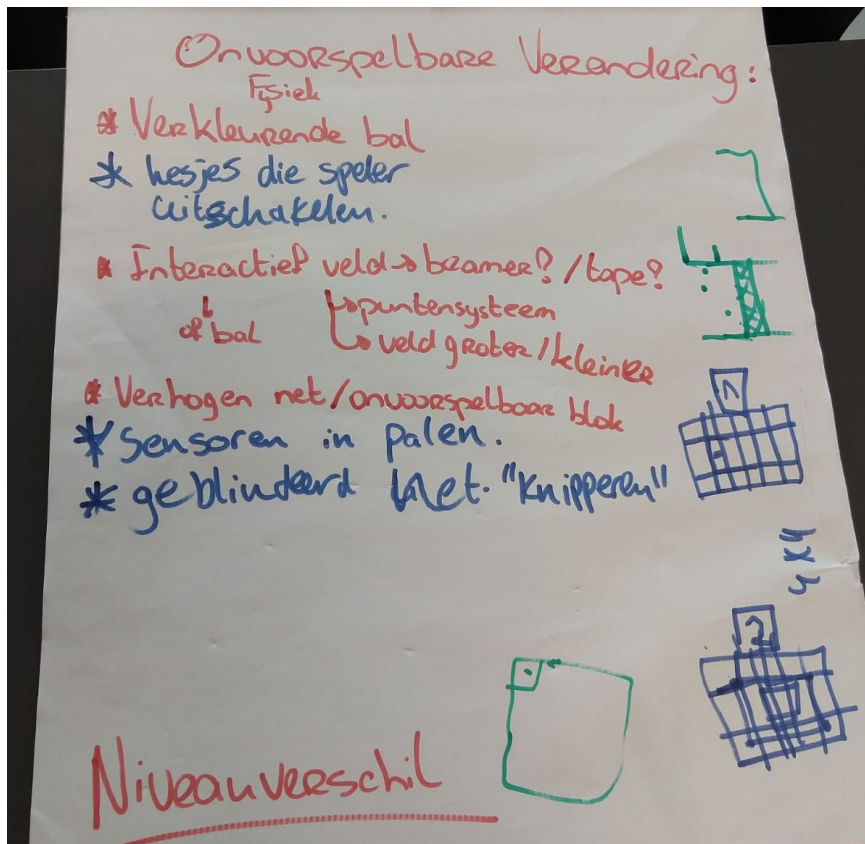 Onvoorspelbare Verandering:
Fysiek
* Verkleurende bal
* hesjes die speler
uitschakelen.
* Interactief veld → beamer? / tape?
↓ ↳ puntensysteem
of bal ↳ veld groter / kleiner
* Verhogen net/onvoorspelbaar blok
* Sensoren in palen.
* geblindeerd Net. "Knipperen"
1
2
Niveauverschil